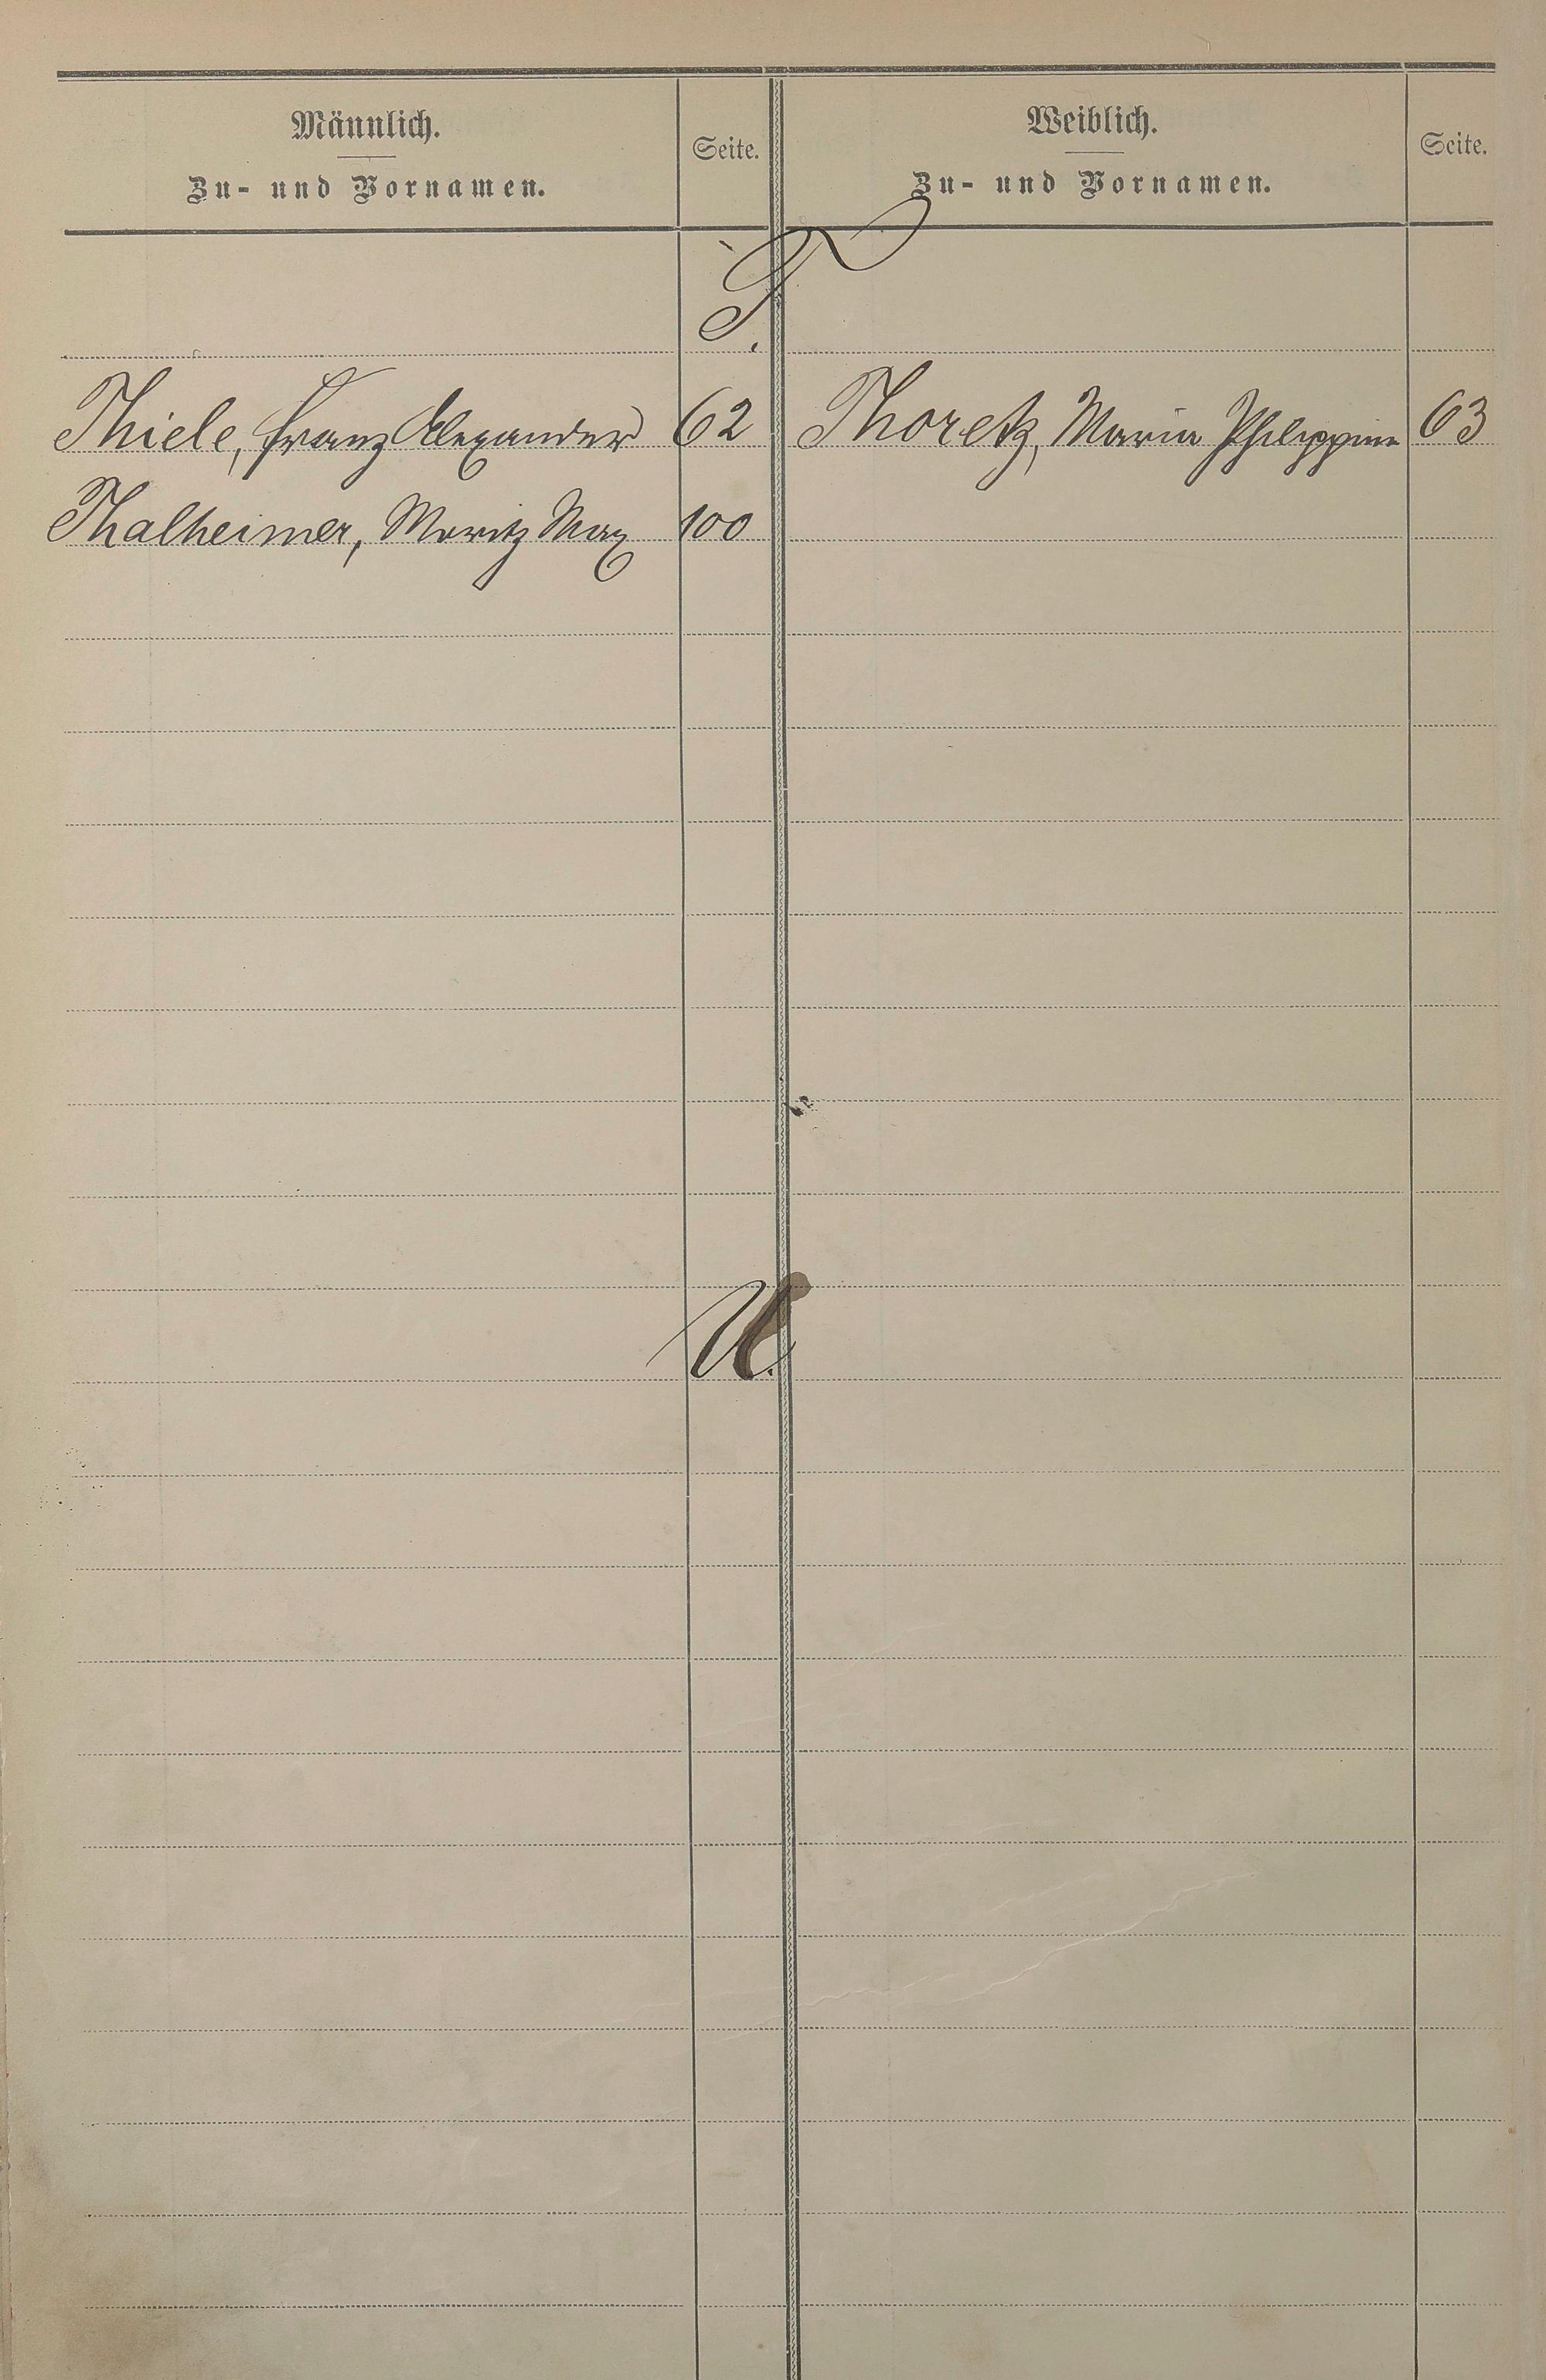 Männlich. Weiblich.
Seite. Seite.
Zu- und Vornamen. Zu- und Vornamen.
T.
Thiele, Franz Alexander 62 Thoretz, Maria Philippine 63
Thalheimer, Moritz Max 100
U.